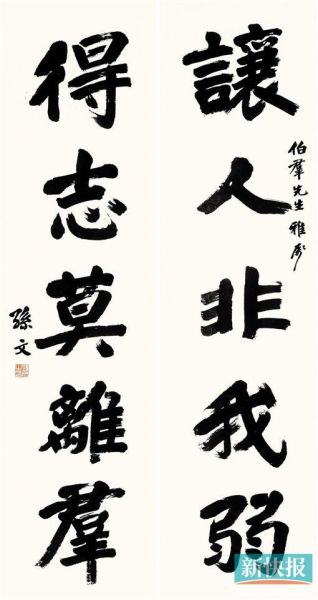 讓人非我弱
伯羣先生雅屬
得志莫離羣
孫文
新快报